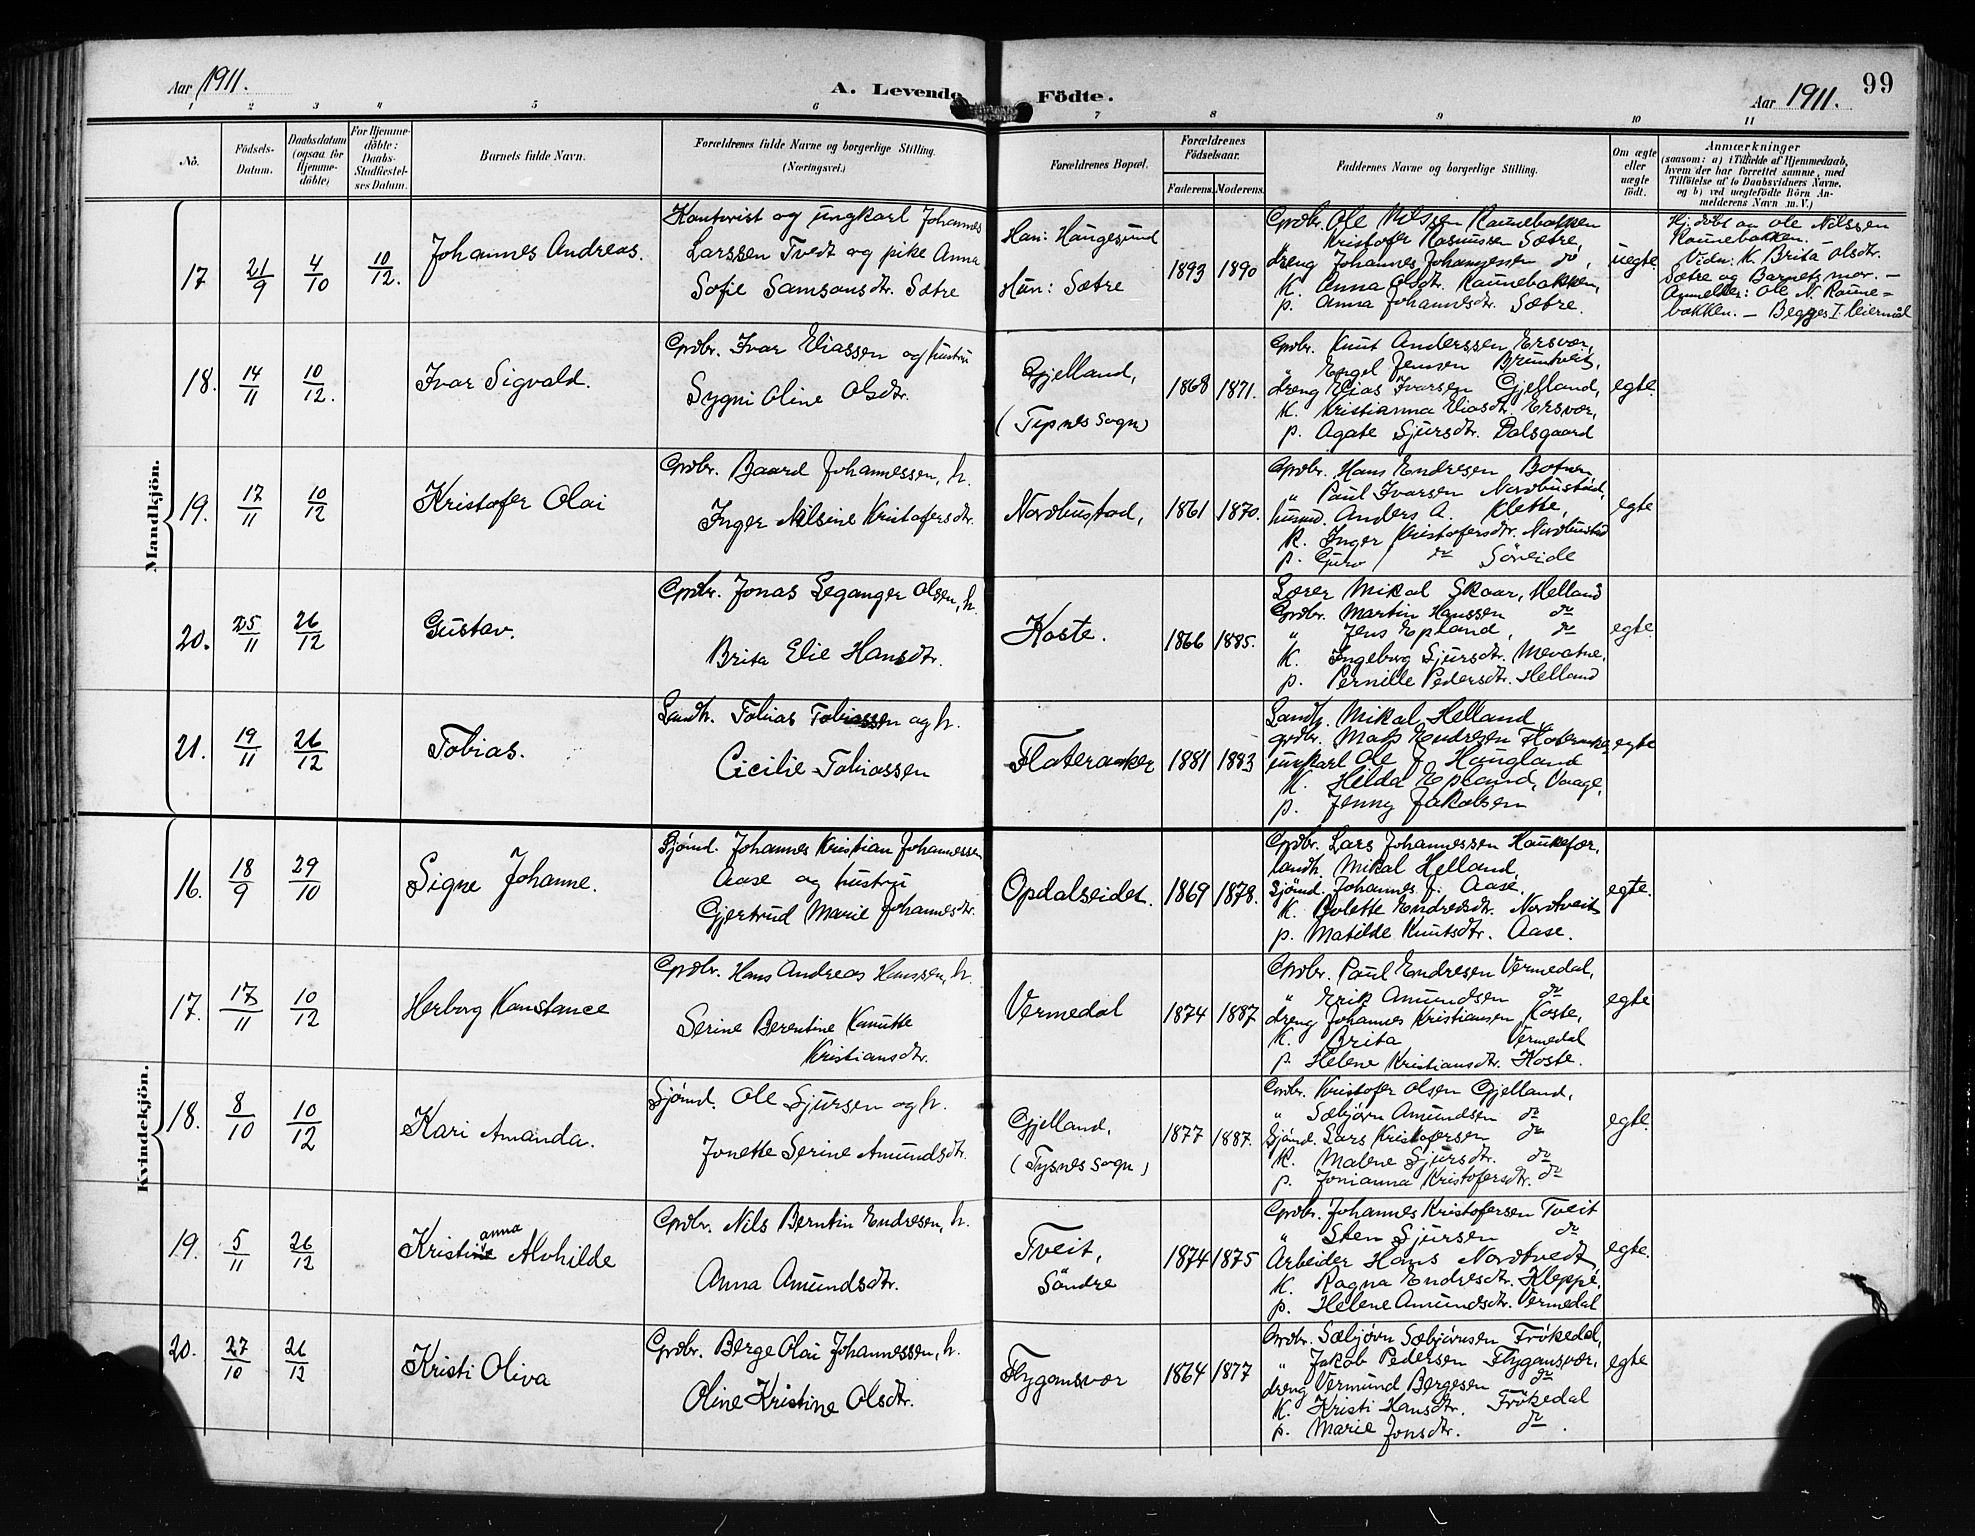 Aar 1911.
A. Levende Fødte.
Aar 1911.
99
1 2 3 4 5 6 7 8 9 10 11
No.
Fødsels-Datum.
Daabsdatum (ogsaa for Hjemmedøbte)
For Hjemmedøbte: Daabs-Stadfæstelses Datum.
Barnets fulde Navn.
Forældrenes fulde Navne og borgerlige Stilling. (Næringsvei.)
Forældrenes Bopæl.
Forældrenes Fødselsaar.
Faderens. Moderens.
Faddernes Navne og borgerlige Stilling.
Om ægte eller uægte født.
Anmærkninger
(saasom: a) i Tilfælde af Hjemmedaab, hvem der har forrettet samme, med Tilføielse af to Daabsvidners Navne, og b) ved uægtefødte Børn Anmelderens Navn m. V.)
Mandkjön.
17 21/9 4/10 10/12. Johannes Andreas.
Kontorist og ungkarl Johannes
Larssen Tvedt og pike Anna
Sofie Samsonsdtr. Sætre
Han: Haugesund
Hun: Sætre
1893 1890
Grdbr. Ole Nilssen Raunebakken
Kristofer Rasmussen Sætre,
dreng Johannes Johannessen do,
K. Anna Olsdtr. Raunebakken,
p. Anna Johannesdtr. Sætre.
uegte.
Hj. døbt av Ole Nilssen
Raunebakken. —
Vidn: K. Brita Olsdtr.
Sætre og Barnets mor. —
Anmelder: Ole N. Raune=
bakken. — Begges I leiermål
18. 14/11 10/12. Ivar Sigvald.
Grdbr. Ivar Eliassen og hustru
Sygni Oline Olsdtr.
Gjelland,
(Tysnes sogn)
1868 1871.
Grdbr. Knut Anderssen Ersvær,
" Engel Jensen Bruntveit,
dreng Elias Ivarsen Gjelland,
K. Kristianna Eliasdtr. Ersvær,
p. Agate Sjursdtr. Dalsgaard
egte.
19. 17/11 10/12 Kristofer Olai
Grdbr. Baard Johannessen, h.
Inger Nilsine Kristofersdtr.
Nordbustad,
1861 1870.
Grdbr. Hans Endresen Botnen
" Paul Ivarsen Nordbustad,
husmd. Anders A. Klette,
K. Inger Kristofersdtr. Nordbustad
p. Guro do Söreide
egte
20. 25/11 26/12 Gustav.
Grdbr. Jonas Leganger Olsen, h.
Brita Elie Hansdtr.
Koste.
1866 1885.
Lærer Mikal Skaar, Helland
Grdbr. Martin Hanssen do
" Jens Epland, do
K. Ingeborg Sjursdtr. Mevatne,
p. Pernille Pedersdtr. Helland
egte.
21. 19/11 26/12 Tobias.
Landh. Tobias Tobiassen og h.
Cicilie Tobiassen
Flateraaker
1881 1883
Landh. Mikal Helland,
grdbr. Mats Endresen Flateraaker
ungkarl Ole J. Haugland
K. Hilda Epland, Vaage,
p. Jenny Jakobsen
egte
Kvindekjön.
16. 18/9 29/10 Signe Johanne.
Sjömd. Johannes Kristian Johannessen
Aase og hustru
Gjertrud Marie Johannesdtr.
Opdalseidet.
1869 1878.
Grdbr. Lars Johannessen Haukefær,
landh. Mikal Helland,
sjömd. Johannes J. Aase,
K. Bolette Endresdtr. Nordtveit
p. Matilde Knutsdtr. Aase.
egte.
17. 17/11 10/12 Herborg Konstance
Grdbr. Hans Andreas Hanssen, h.
Serine Berentine Knutte
Kristiansdtr.
Vermedal
1874 1887
Grdbr. Paul Endresen Vermedal,
" Erik Amundsen do
dreng Johannes Kristiansen, Koste,
K. Brita Vermedal
p. Helene Kristiansdtr. Koste.
egte
18. 8/10 10/12 Kari Amanda.
Sjömd. Ole Sjursen og h.
Jonette Serine Amundsdtr.
Gjelland,
(Tysnes sogn)
1877 1887.
Grdbr. Kristofer Olsen Gjelland,
" Sæbjörn Amundsen do
Sjömd. Lars Kristofersen do
K. Malene Sjursdtr. do
p. Jonianna Kristofersdtr. do
egte.
19. 5/11 26/12 Kristianna Alvhilde
Grdbr. Nils Berntin Endresen, h.
Anna Amundsdtr.
Tveit,
Söndre
1874 1875
Grdbr. Johannes Kristofersen Tveit
" Sten Sjursen do
Arbeider Hans Nordtvedt,
K. Ragna Endresdtr. Kleppe,
p. Helene Amundsdtr. Vermedal
egte.
20. 27/10 26/12 Kristi Oliva
Grdbr. Berge Olai Johannessen, h.
Oline Kristine Olsdtr.
Flygansvær
1864 1877
Grdbr. Sæbjörn Sæbjörnsen Frökedal,
" Jakob Pedersen Flygansvær,
dreng Vermund Bergesen do
K. Kristi Hansdtr. Frökedal
p. Marie Jonsdtr. do.
egte